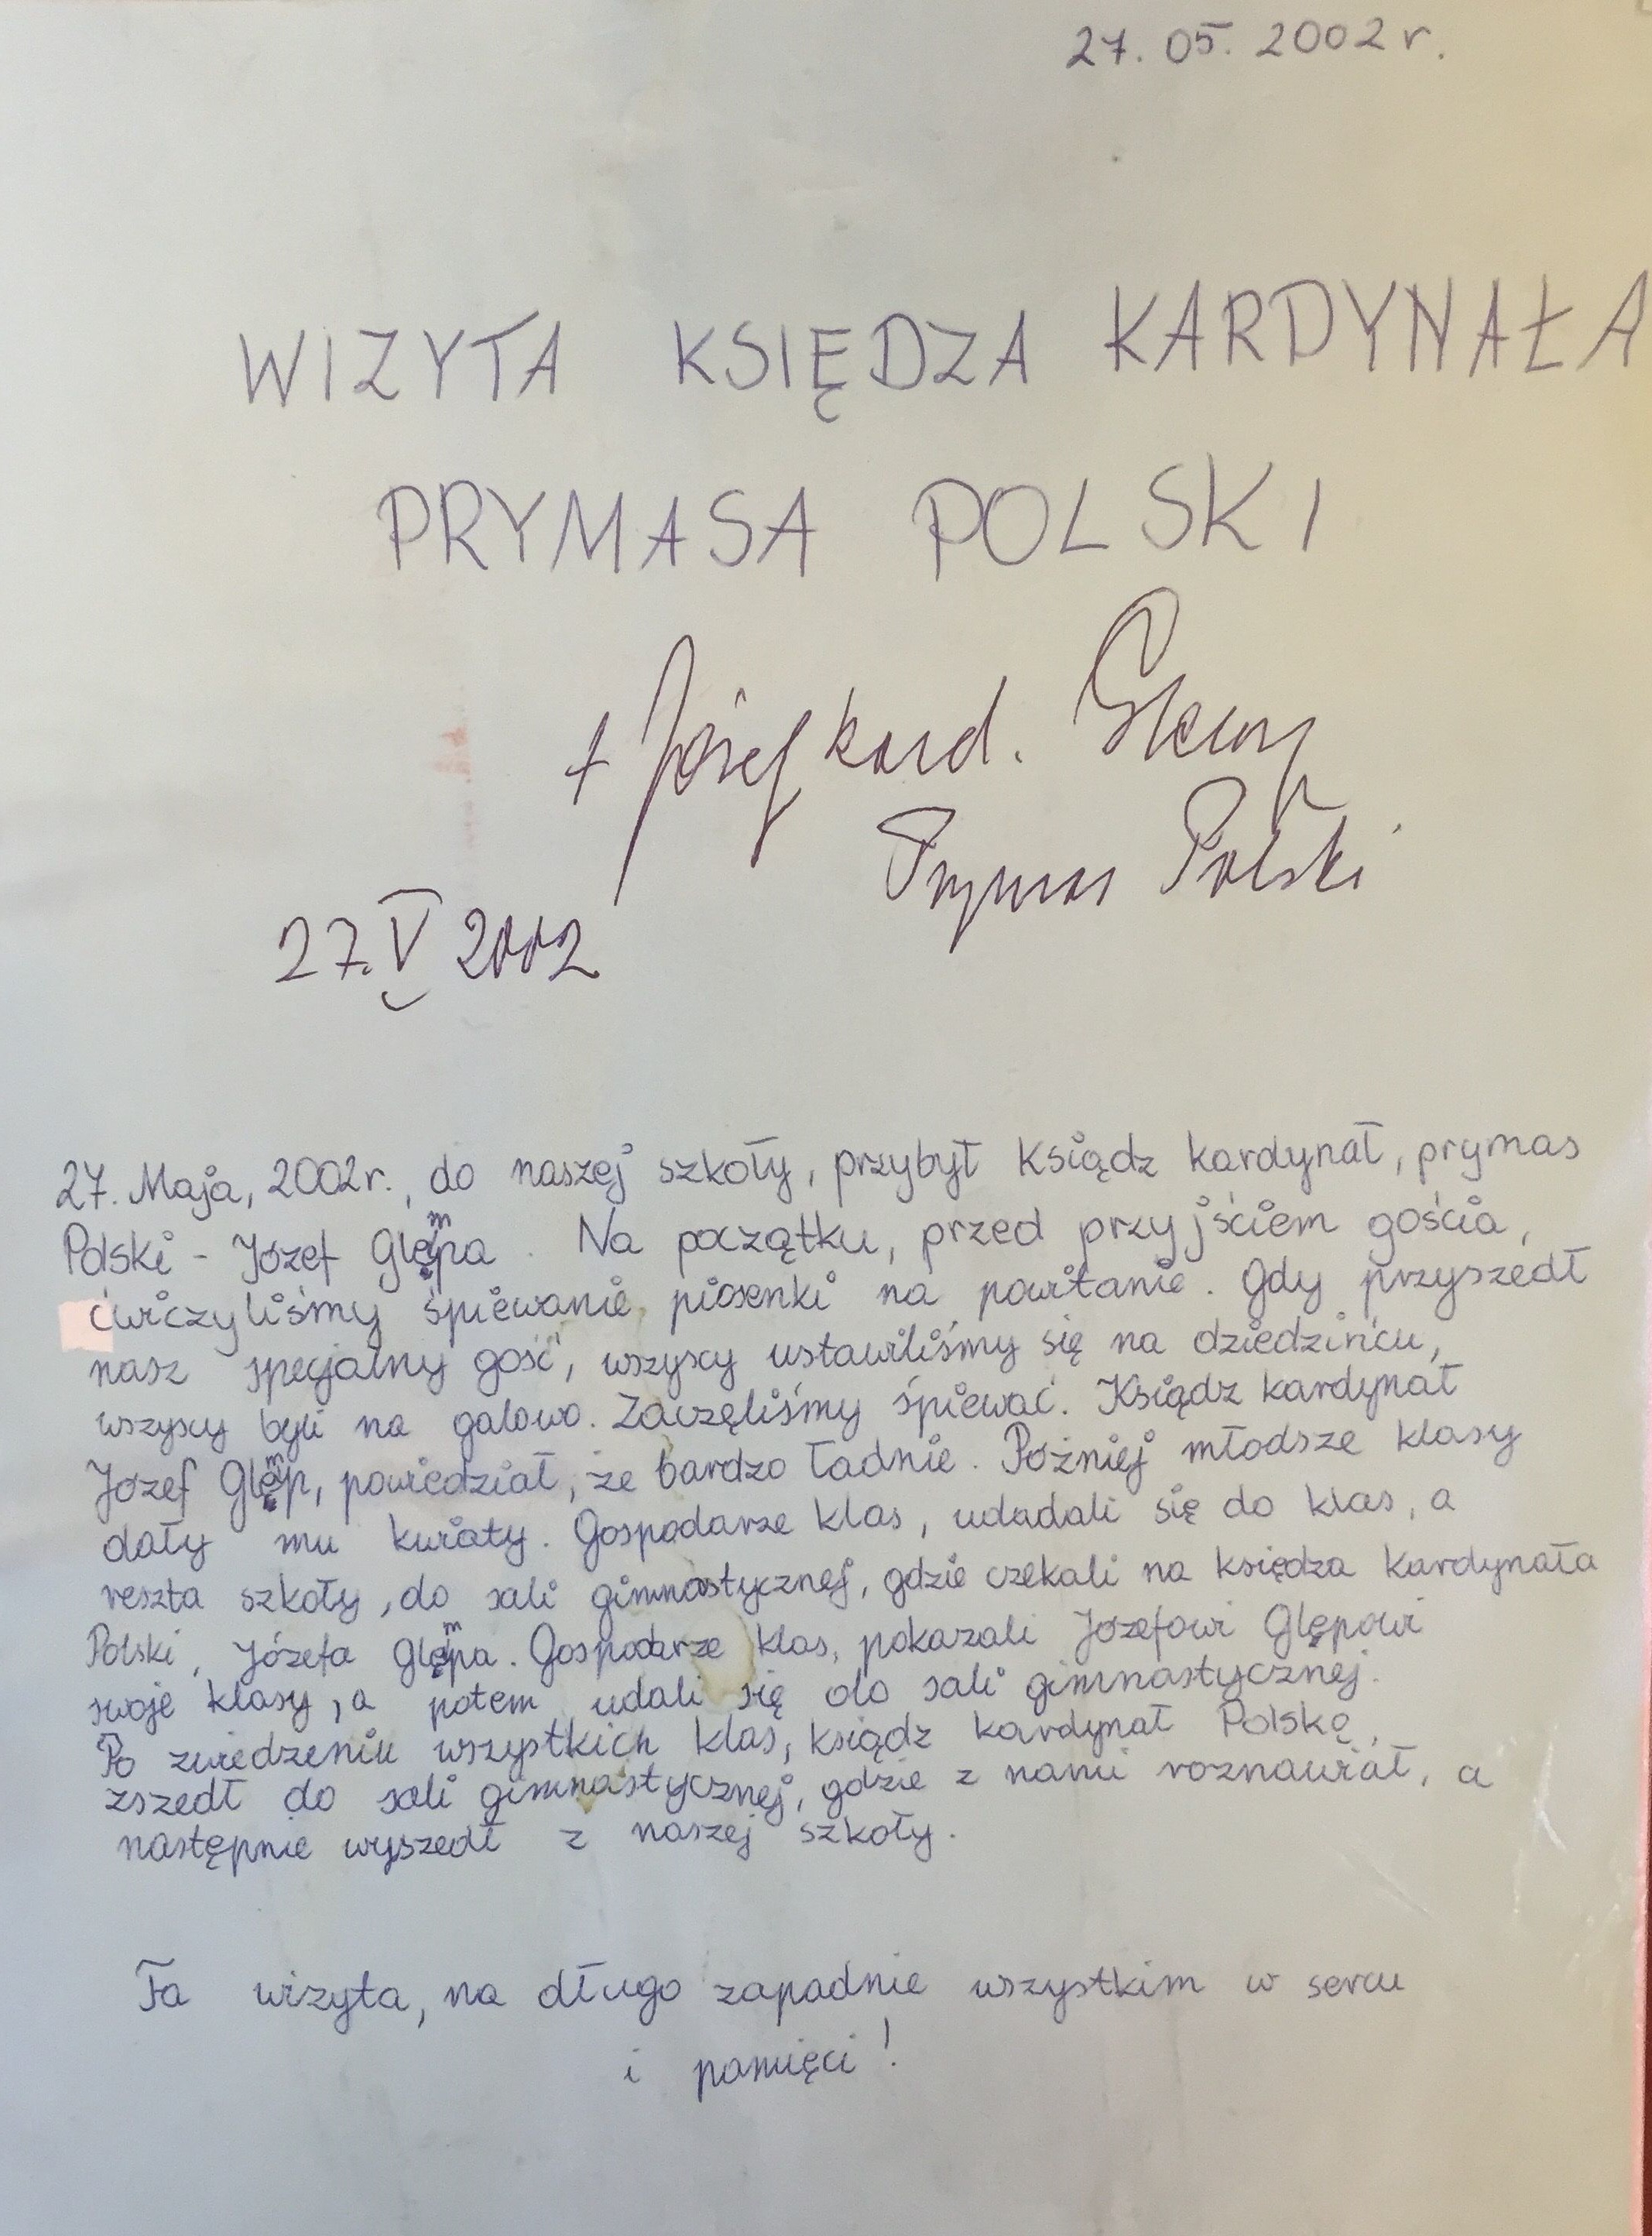 27. 05. 2002 r.
WIZYTA KSIĘDZA KARDYNAŁA
PRYMASA POLSKI
+ Józef kard. Glemp
Prymas Polski
27. V 2002
27. Maja, 2002r., do naszej szkoły, przybył Ksiądz kardynał, prymas
Polski - Józef Glempa. Na początku, przed przyjściem gościa,
ćwiczyliśmy śpiewanie piosenki na powitanie. Gdy przyszedł
nasz specjalny gość, wszyscy ustawiliśmy się na dziedzińcu,
wszyscy byli na galowo. Zaczęliśmy śpiewać. Ksiądz kardynał
Józef Glemp, powiedział, że bardzo ładnie. Później młodsze klasy
dały mu kwiaty. Gospodarze klas, udadali się do klas, a
reszta szkoły, do sali gimnastycznej, gdzie czekali na księdza Kardynała
Polski, Józefa Glempa. Gospodarze klas, pokazali Józefowi Glępowi
swoje klasy, a potem udali się do sali gimnastycznej.
Po zwiedzeniu wszystkich klas, ksiądz kardynał Polskę,
zszedł do sali gimnastycznej, gdzie z nami roznawiał, a
następnie wyszedł z naszej szkoły.
Ta wizyta, na długo zapadnie wszystkim w sercu
i pamięci!